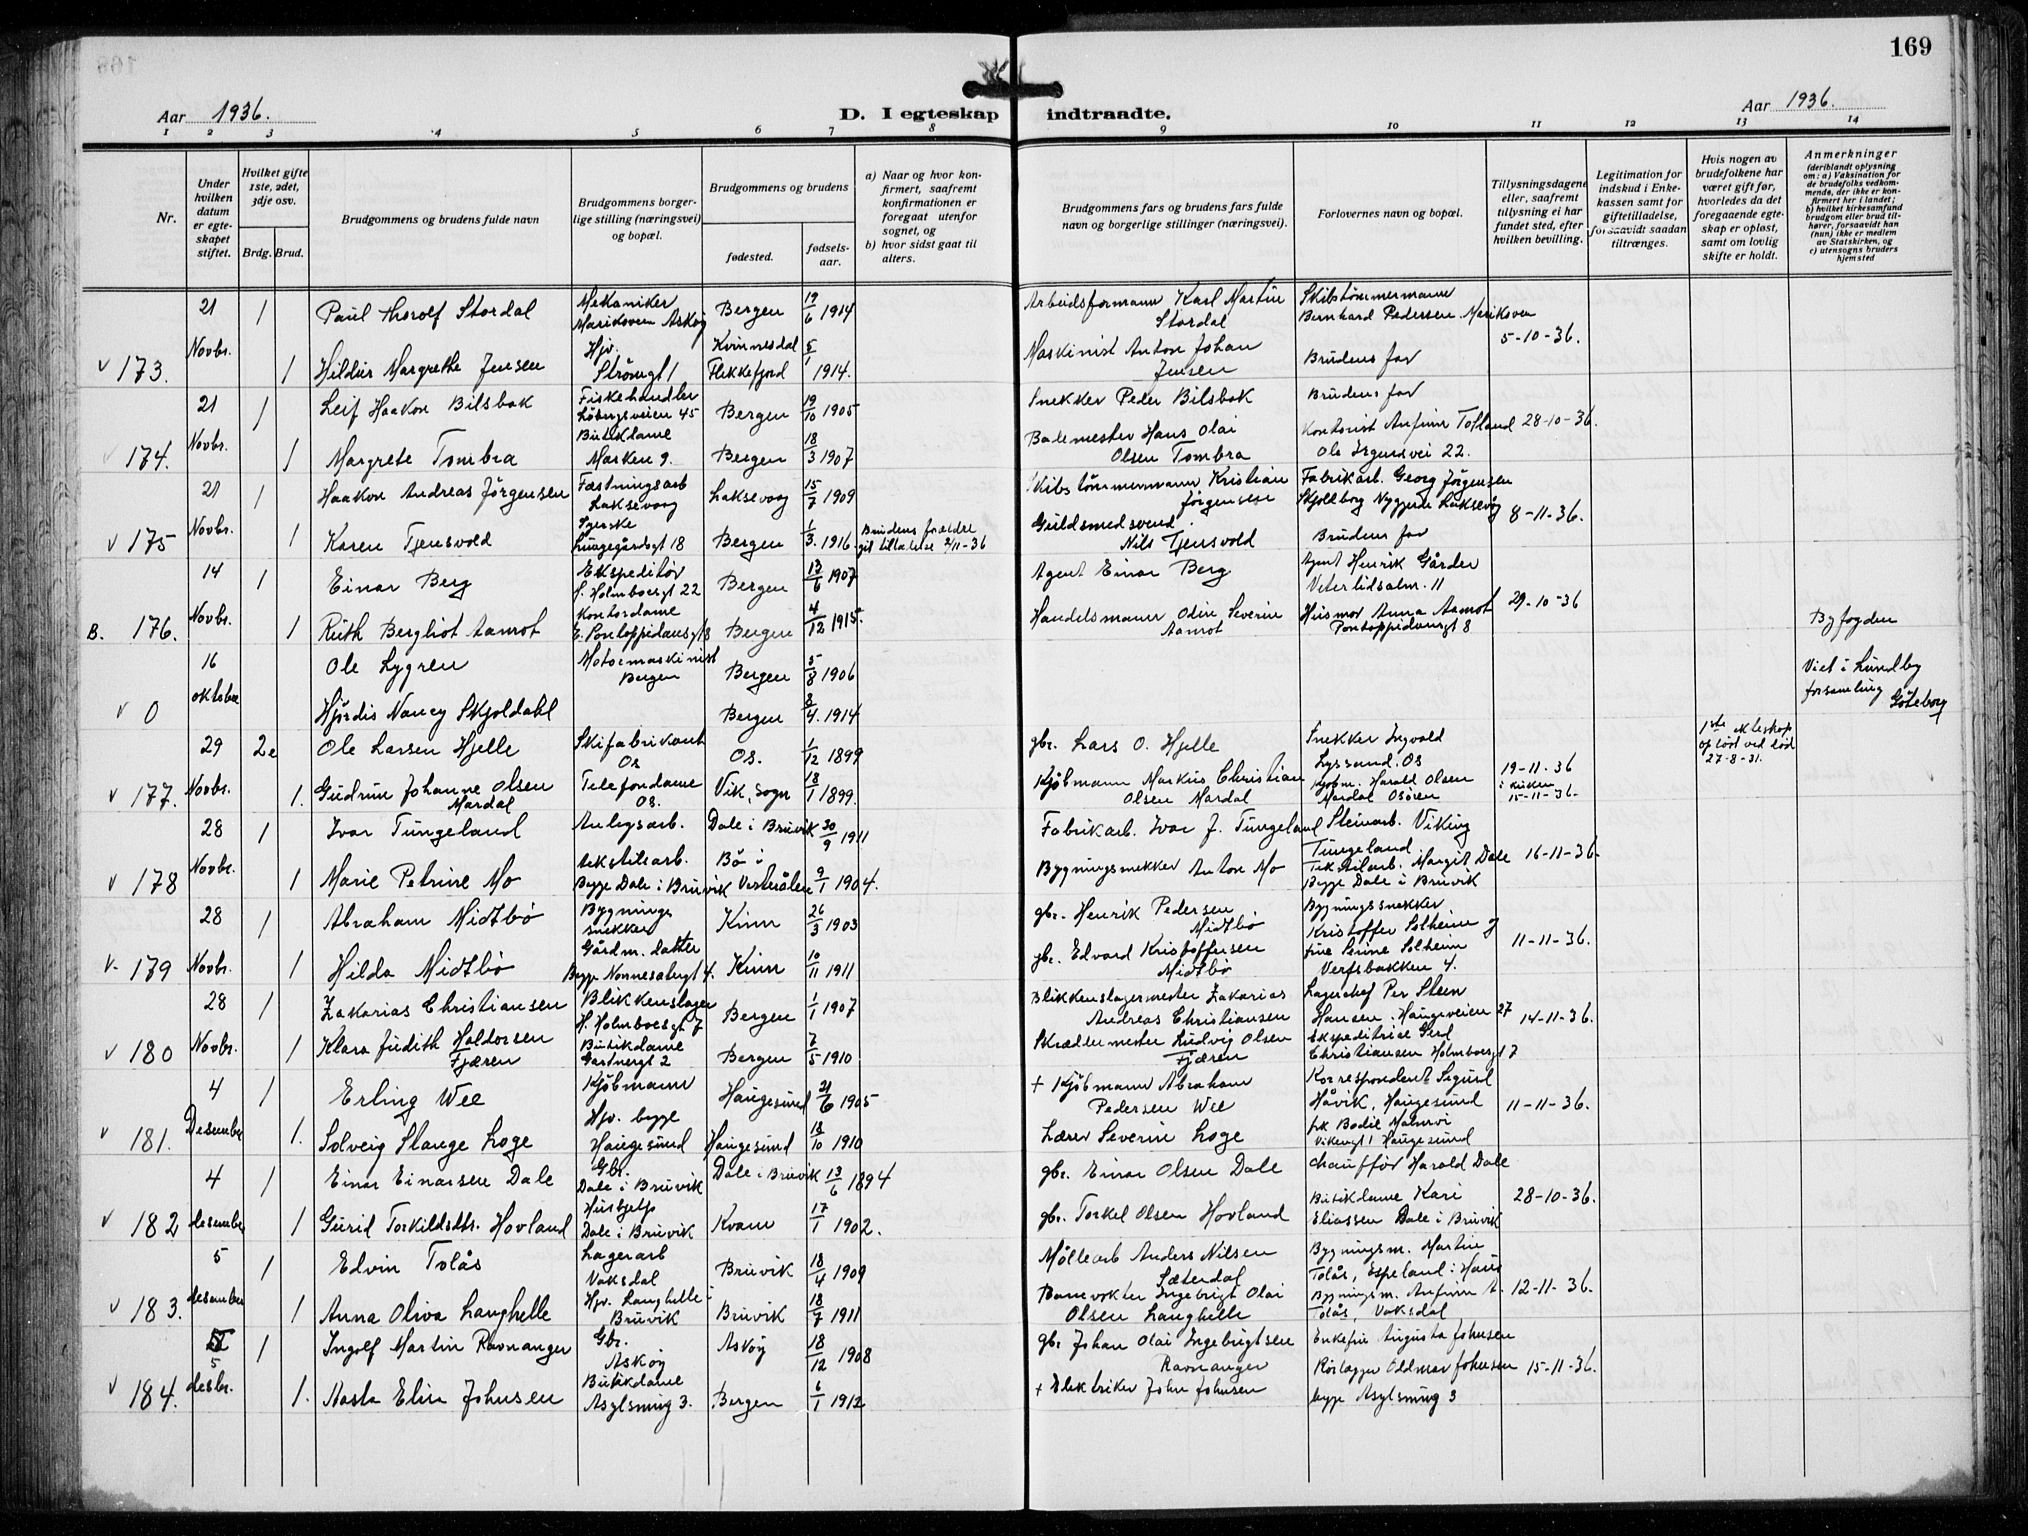 169
Aar 1936.
D. I egteskap indtraadte.
Aar 1936.
1 2 3 4 5 6 7 8 9 10 11 12 13 14
Nr.
Under hvilken datum er egteskapet stiftet.
Hvilket gifte 1ste, 2det, 3dje osv.
Brdg. Brud.
Brudgommens og brudens fulde navn
Brudgommens borgerlige stilling (næringsvei) og bopæl.
Brudgommens og brudens
fødested.
fødselsaar.
a) Naar og hvor konfirmert, saafremt konfirmationen er foregaat utenfor sognet, og
b) hvor sidst gaat til alters.
Brudgommens fars og brudens fars fulde navn og borgerlige stillinger (næringsvei).
Forlovernes navn og bopæl.
Tillysningsdagene eller, saafremt tillysning ei har fundet sted, efter hvilken bevilling.
Legitimation for indskud i Enkekassen samt for giftetilladelse, forsaavidt saadan tiltrænges.
Hvis nogen av brudefolkene har været gift før, hvorledes da det foregaaende egteskap er opløst, samt om lovlig skifte er holdt.
Anmerkninger
(deriblandt oplysning om: a) Vaksination for de brudefolks vedkommende, der ikke er konfirmert her i landet; b) hvilket kirkesamfund brudgom eller brud tilhører, forsaavidt han (hun) ikke er medlem av Statskirken, og c) utensogns bruders hjemsted
21 1 Paul Thorolf Stordal Mekaniker Marikoven Askøy Bergen 19/6 1914 Arbeidsformann Karl Martin Stordal Skibstømmermann Bernhard Pedersen Marikoven
v 173. Novbr. 1 Hildur Margrethe Jensen Hjv. Strømgt 1 Kvinnesdal Flekkefjord 5/1 1914. Maskinist Anton Johan Jensen Brudens far 5-10-36.
21 1 Leif Haakon Bilsbak Fiskehandler 45 Bergen 19/10 1905 Snekker Peder Bilsbak Brudens far
v 174. Novbr. 1 Margrete Tombra Butikdame Marken 9. Bergen 18/3 1907 Bademester Hans Olai Olsen Tombra Kontorist Anfinn 28-10-36. Ole Irgensvei 22.
21 1 Haakon Andreas Jørgensen Fæstningsarb Laksevaag Laksevaag 15/7 1909 Skibstømmermann Kristian Jørgensen Fabrikarb. Georg Jørgensen
v 175 Novbr. 1 Karen Tjensvold Syerske Lungegårdsgt 18 Bergen 1/3. 1916. Brudens forældre git tillatelse 2/11-36 Guldsmedsvend Nils Tjensvold Brudens far 8-11-36.
14 1 Einar Berg Ekspeditør H. Holmboesgt 22 Bergen 13/6 1907 Agent Einar Berg Agent Henrik Gårder Vetrlidsalm. 11
B. 176. Novbr. 1 Ruth Bergliot Aamot Kontordame E. Pontoppidansgt 8 Bergen 4/12 1915. Handelsmann Odin Severin Aamot Husmor Anna Aamot Pontoppidansgt 8 29-10-36 Byfogden
16 Ole Lygren Motormaskinist Bergen Bergen 5/8 1906
v 0 oktober Hjørdis Nancy Skjoldahl Bergen 8/4. 1914 Viet i Lundby forsamling Göteborg
29 2e Ole Larsen Hjelle Skifabrikant Os Os. 1/12 1899 gbr. Lars O. Hjelle Snekker Ingvald Lyssand. Os 1ste ekteskap opløst ved død 27-8-31.
v 177. Novbr. 1. Gudrun Johanne Olsen Mardal Telefondame Os. Vik, Sogn 18/1 1899. Kjøbmann Markus Christian Olsen Mardal Kjøbm. Harald Olsen Mardal Osøren 19-11-36 i kirken 15-11-36.
28 1 Ivar Tungeland Anlegsarb. Dale i Bruvik 30/9 1911 Fabrikarb. Ivar J. Tungeland Steinarb. Viking Tungeland
v 178 Novbr. 1 Marie Petrine Mo tekstilarb. Begge Dale i Bruvik Bø i Vesterålen 9/1 1904. Bygningssnekker Anton Mo Tekstilarb. Margit Dale Begge Dale i Bruvik 16-11-36.
28 1 Abraham Midtbø Bygningssnekker Kinn 26/3 1903 gbr. Henrik Pedersen Midtbø Bygningssnekker Kristoffer Solheim og
v. 179 Novbr. 1 Hilda Midtbø Gårdm. datter Begge Nonnesætergt 4. Kinn 10/11 1911 gbr. Edvard Kristoffersen Midtbø frue Serine Solheim Verfsbakken 4. 11-11-36.
28 1 Zakarias Christiansen Blikkenslager H. Holmboesgt 7 Bergen 1/1 1907 Blikkenslagermester Zakarias Andreas Christiansen Lagerchef Per Steen Hansen. Haugeveien 27
v 180 Novbr. 1 Klara Judith Haldorsen Fjæren Butikdame Gartnergt 2 Bergen 7/5 1910 Skreddermester Ludvig Olsen Fjæren Ekspeditrise Gerd Christiansen Holmboesgt 7 14-11-36.
4 1 Erling Wee Kjøbmann Haugesund 21/6 1905 + Kjøbmann Abraham Pedersen Wee Korrespondent Sigurd Håvik, Haugesund
v 181. Desember 1. Solveig Stange Loge Hjv. begge Haugesund Haugesund 18/10 1910 Lærer Severin Loge frk Bodil Vikengt 1 Haugesund 11-11-36.
4 1 Einar Einarsen Dale Gbr. Dale i Bruvik Dale i Bruvik 13/6 1894 gbr. Einar Olsen Dale chauffør Harald Dale
v 182 desember 1 Gurid Torkildsdtr. Hovland Hushjelp Dale i Bruvik Kvam 17/1 1902. gbr. Torkel Olsen Hovland Butikdame Kari Eliassen Dale i Bruvik 28-10-36.
5 1 Edvin Tolås Lagerarb Vaksdal Bruvik 18/4 1909 Møllearb Anders Nilsen Sæterdal Bygningsm. Martin Tolås, Espeland i Haus
v 183. desember 1 Anna Oliva Langhelle Hjv. Langhelle i Bruvik Bruvik 18/7 1911 Banevokter Ingebrigt Olai Olsen Langhelle Bygningsm. Anfinn A. Tolås, Vaksdal 12-11-36.
5 1 Ingolf Martin Ravnanger Gbr. Askøy Askøy 18/12 1908 gbr Johan Olai Ingebrigtsen Ravnanger Enkefru Augusta Johnsen
v 184. desbr. 1. Aasta Elin Johnsen Butikdame Asylsmug 3. Bergen 6/1 1912 + Elektriker John Johnsen Rørlegger Oddmar Johnsen begge Asylsmug 3 15-11-36.